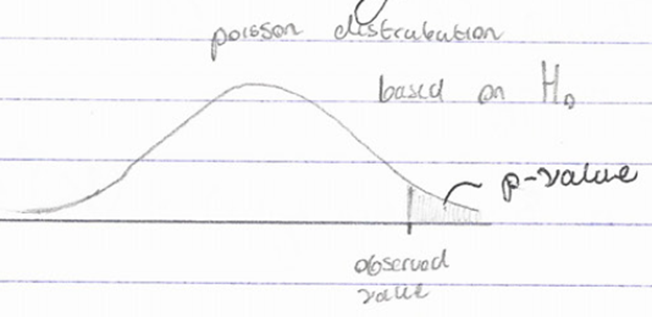 poisson distrubution
based on H₀
p-value
observed
value